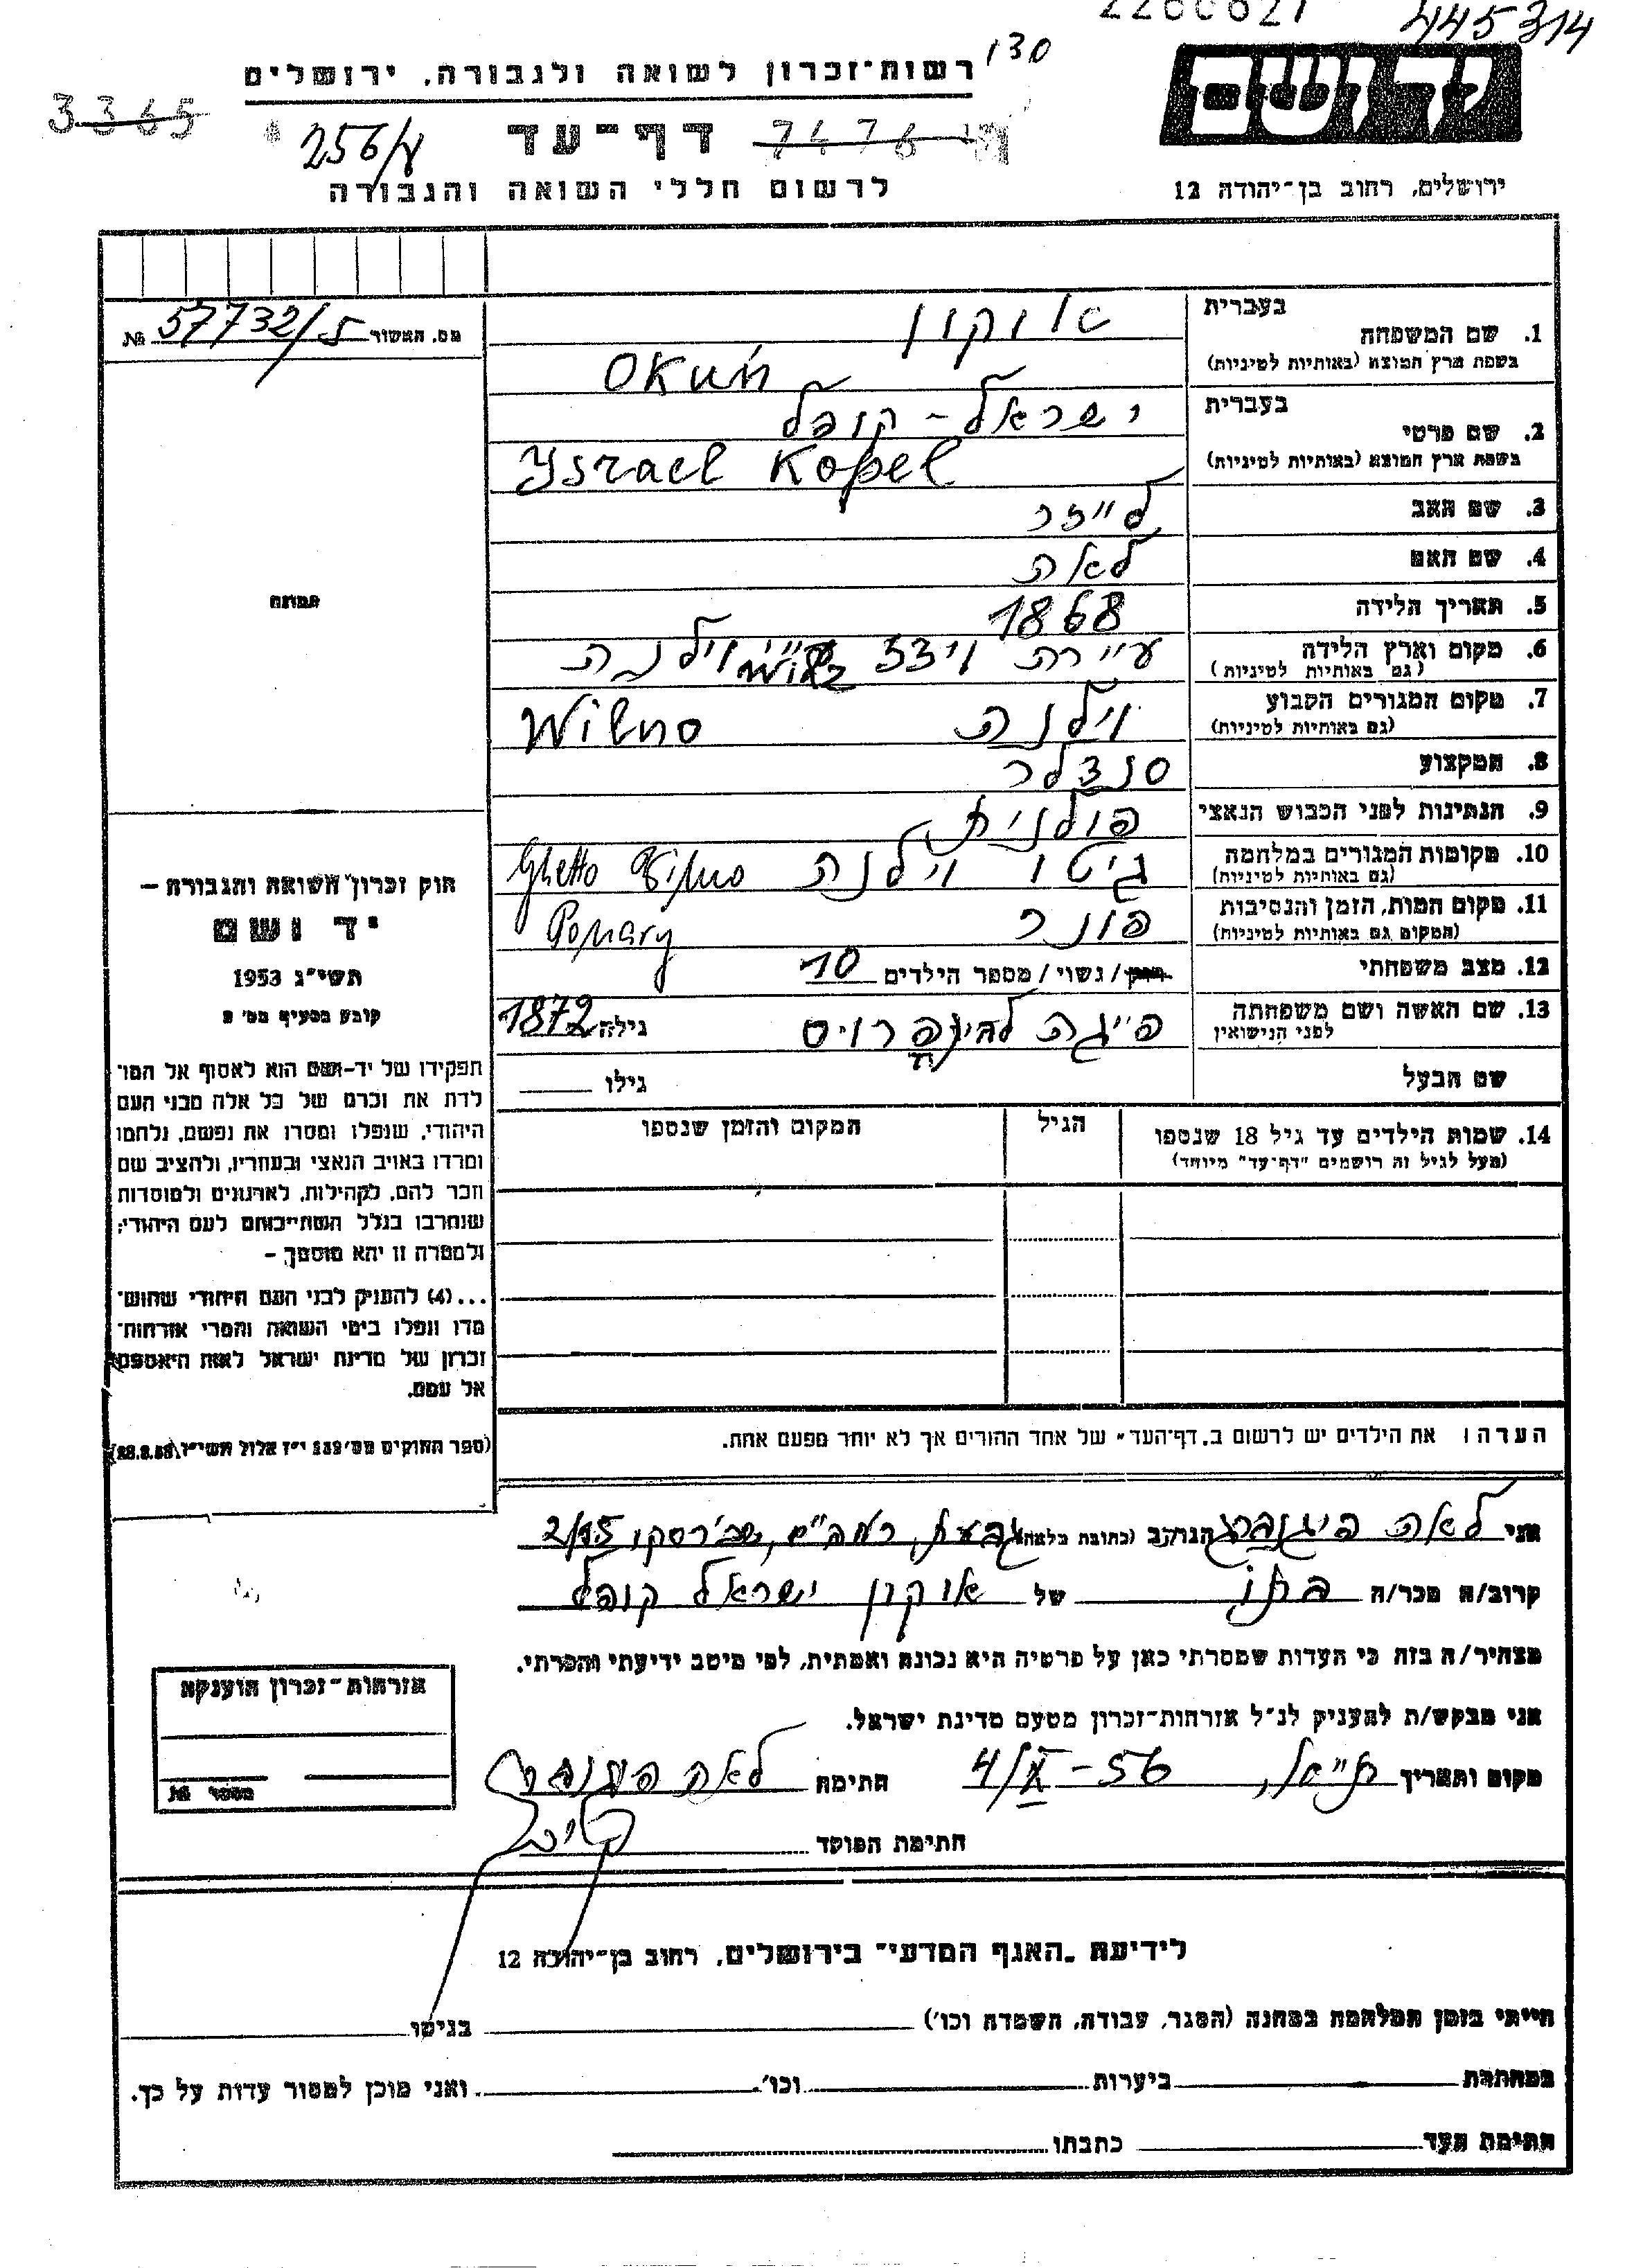 445314
130
רשות־זכרון לשואה ולגבורה, ירושלים
יד ושם
3365
256/א
דף־עד
7476
לרשום חללי השואה והגבורה
ירושלים, רחוב בן־יהודה 12
מס. האשור 57732/5 №
בעברית
1. שם המשפחה אוקון
בשפת ארץ המוצא (באותיות לטיניות) Okuń
בעברית
2. שם פרטי ישראל - קופל
בשפת ארץ המוצא (באותיות לטיניות) Ysrael Kopel
3. שם האב לייזר
4. שם האם לאה
תמונה
5. תאריך הלידה 1868
6. מקום וארץ הלידה עיירה וידז וילנה
(גם באותיות לטיניות)
7. מקום המגורים הקבוע וילנה Wilno
(גם באותיות לטיניות)
8. המקצוע סנדלר
9. הנתינות לפני הכבוש הנאצי פולנית
10. מקומות המגורים במלחמה גיטו וילנה Ghetto Wilno
(גם באותיות לטיניות)
11. מקום המות, הזמן והנסיבות פונר Ponary
(המקום גם באותיות לטיניות)
12. מצב משפחתי רווק / נשוי / מספר הילדים 10
13. שם האשה ושם משפחתה פייגה גילה 1872
לפני הנישואין
שם הבעל גילו
חוק זכרון השואה והגבורה —
יד ושם
תשי״ג 1953
קובע בסעיף מס׳ 2
תפקידו של יד־ושם הוא לאסוף אל המו־
לדת את זכרם של כל אלה מבני העם
היהודי, שנפלו ומסרו את נפשם, נלחמו
ומרדו באויב הנאצי ובעוזריו, ולהציב שם
וזכר להם, לקהילות, לארגונים ולמוסדות
שנחרבו בגלל השתייכותם לעם היהודי;
ולמטרה זו יהא מוסמך —
...(4) להעניק לבני העם היהודי שהוש־
מדו ונפלו בימי השואה והמרי אזרחות־
זכרון של מדינת ישראל לאות היאספם
אל עמם.
(ספר החוקים מס׳ 132 י״ז אלול תשי״ג, 28.8.53)
14. שמות הילדים עד גיל 18 שנספו הגיל המקום והזמן שנספו
(מעל לגיל זה רושמים ״דף־עד״ מיוחד)
הערה: את הילדים יש לרשום ב„דף־העד״ של אחד ההורים אך לא יותר מפעם אחת.
אני לאה פיגנברג הגר/ה ב (כתובת מלאה) גבעת, רמב״ם, שכ׳ רסקו 2/95
קרוב/ה מכר/ה בתו של אוקון ישראל קופל
מצהיר/ה בזה כי העדות שמסרתי כאן על פרטיה היא נכונה ואמתית, לפי מיטב ידיעתי והכרתי.
אני מבקש/ת להעניק לנ״ל אזרחות־זכרון מטעם מדינת ישראל.
מקום ותאריך 4/X - 56 חתימה לאה פיגנברג
חתימת הפוקד
אזרחות־זכרון הוענקה
מספר №
לידיעת „האגף המדעי״ בירושלים, רחוב בן־יהודה 12
הייתי בזמן המלחמה במחנה (הסגר, עבודה, השמדה וכו׳) בגיטו
במחתרת ביערות וכו׳ ואני מוכן למסור עדות על כך.
חתימת העד כתבתו